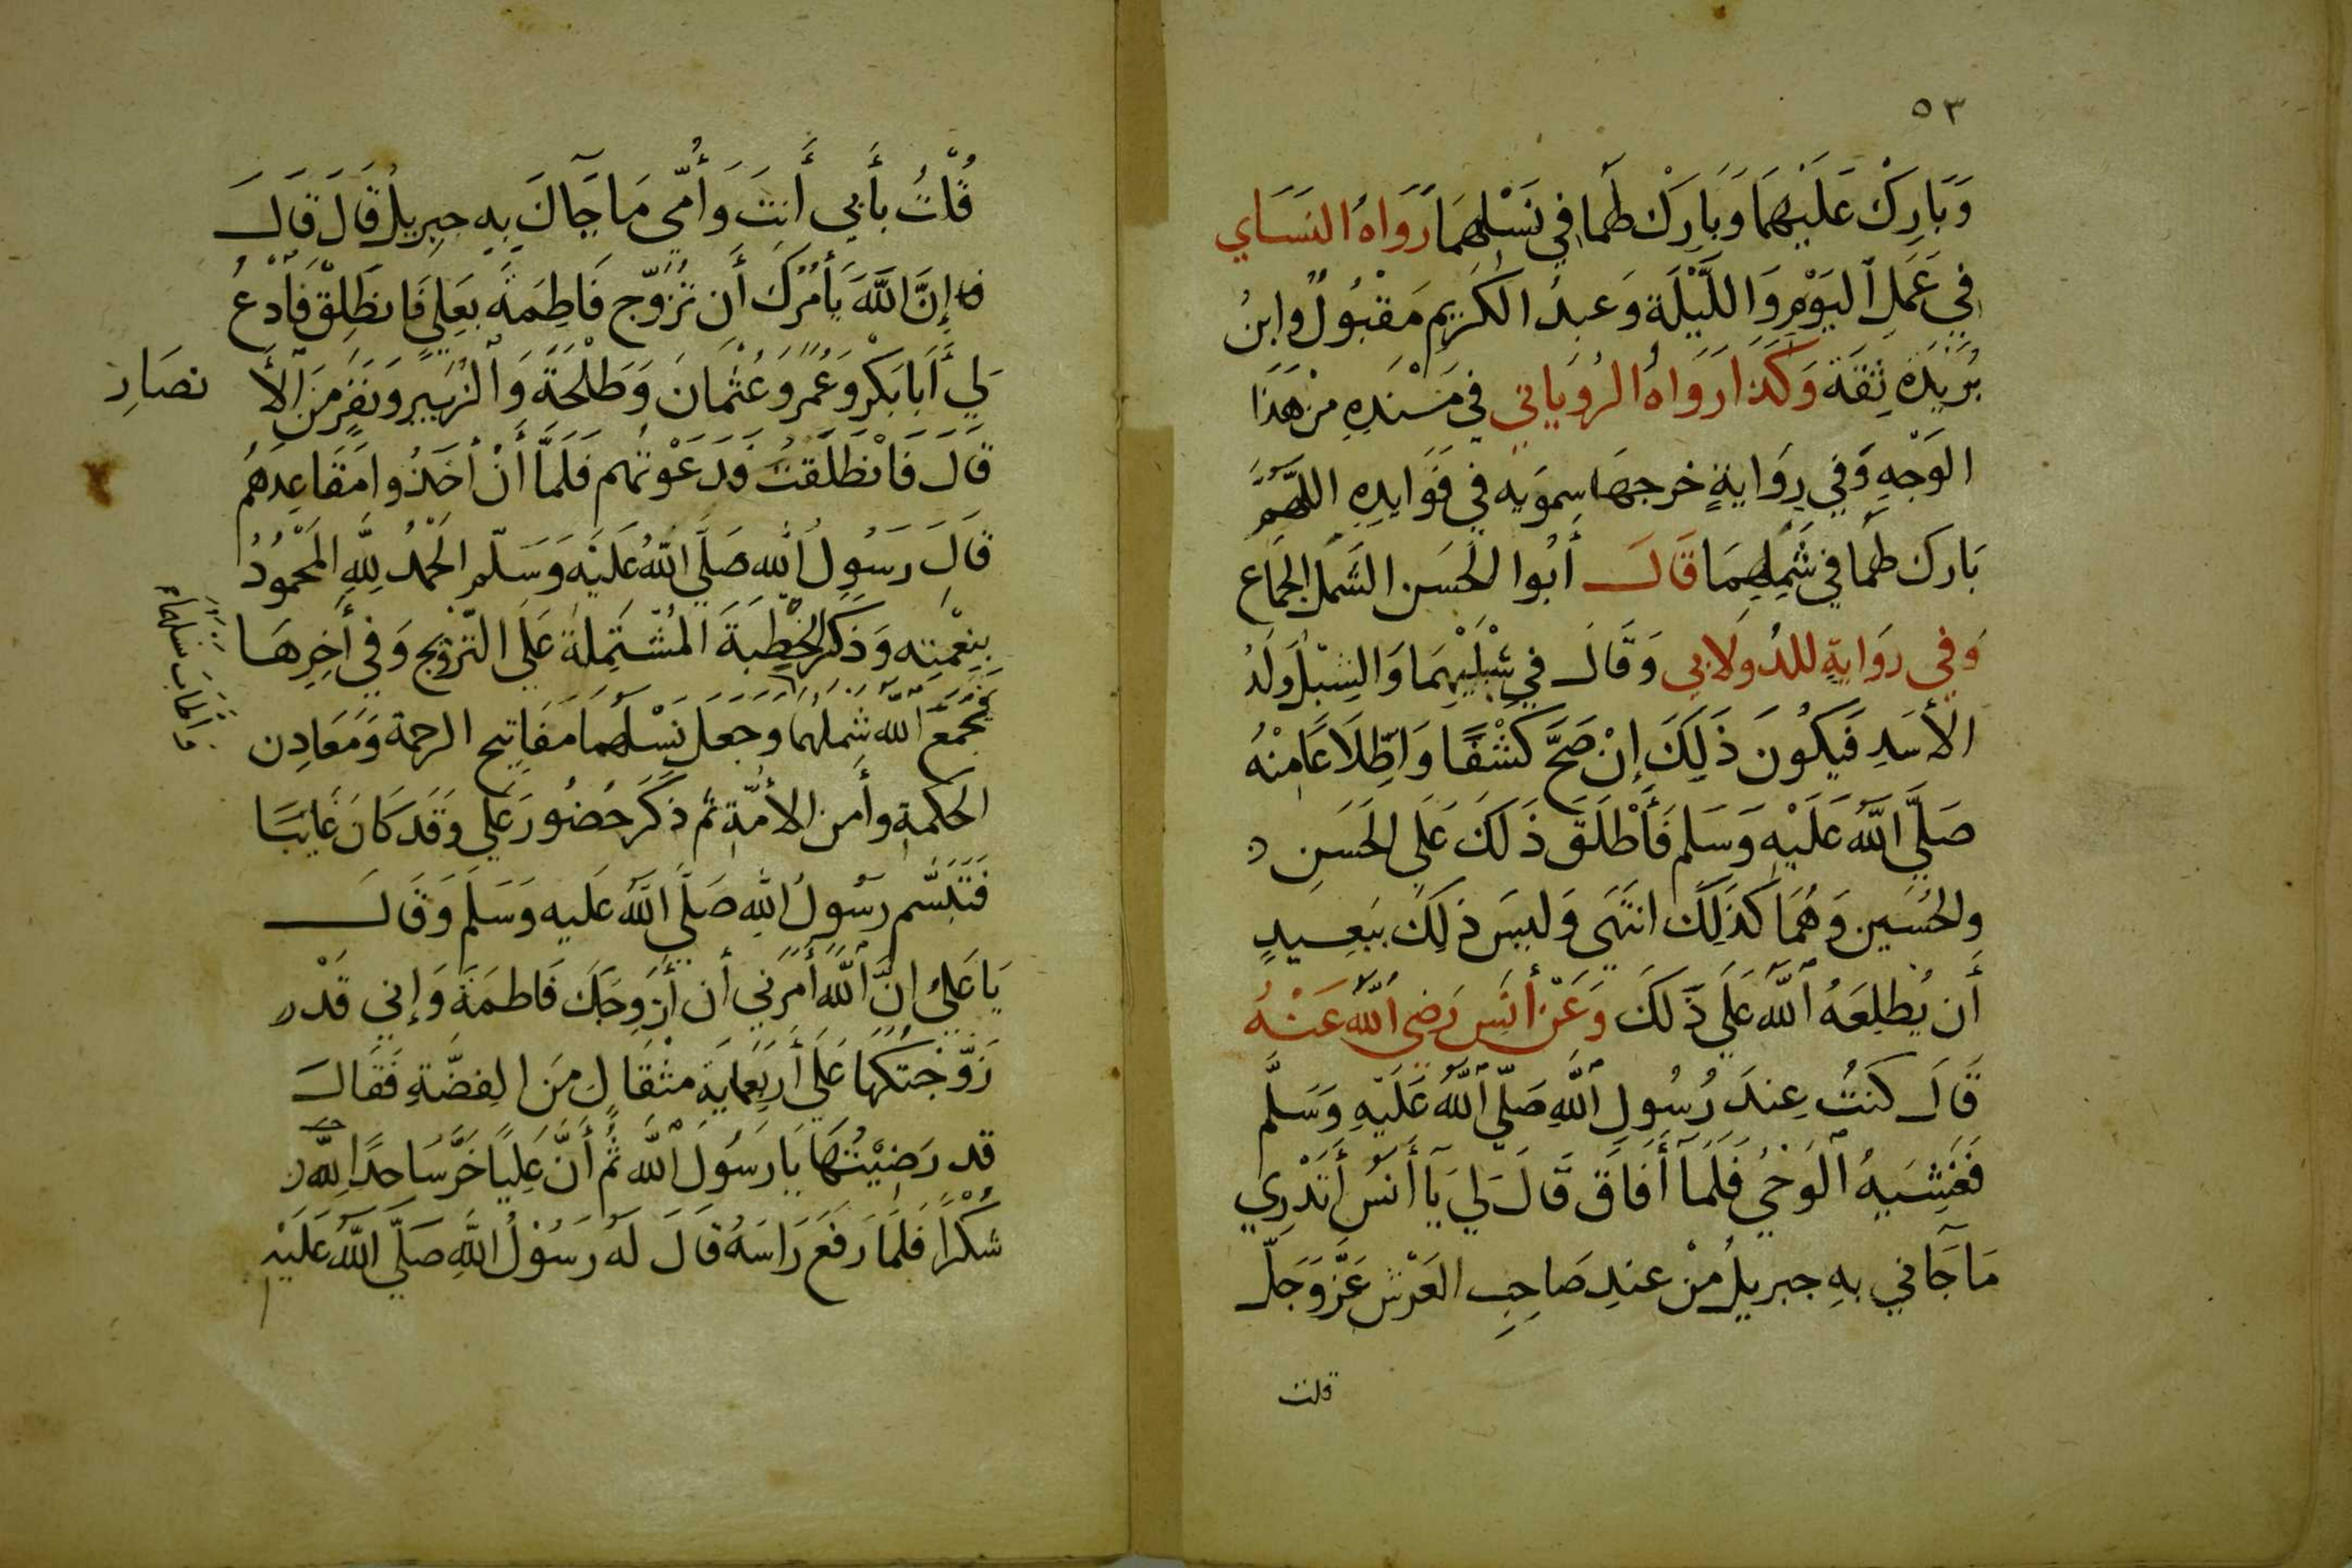 ٥٣
وَبَارِكْ عَلَيْهِمَا وَبَارِكْ لهُمَا فِي نَسْلِهِمَا رَوَاهُ النَسَاي
فِي عَمَلِ اليَوْمِ وَاللَّيْلَة وَعبدُ الكَرِيم مَقْبُولٌ وابنُ
بُرَيدَة ثِقَة وَكَذَا رَوَاهُ الرُويَاني فِي مَسْنَدِهِ مِنْ هَذَا
الوَجْهِ وَفِي رِوَايةٍ خرجهَا سِموَيه فِي فَوَايدِهِ اللهُمَّ
بَارك لهُمَا فِي شَمْلِهِمَا قَالَ أَبُوا الحَسَن الشَمل الجمَاع
وَفي روَايةٍ للدُولابي وَقَالَ فِي شِبْلَيْهِمَا وَالشِبْلُ وَلَدُ
الأَسَدِ فَيكُونَ ذَلِكَ إنْ صَحَّ كَشْفًا وَاطِّلَاعَا مِنْهُ
صَلَّى اللَّهُ عَلَيْهِ وَسَلم فَأَطْلَقَ ذَلكَ عَلَى الحَسَنِ
والحُسَين وَهُمَا كَذَلِكَ انتَهَى وَليسَ ذلِكَ ببَعِيدٍ
أَن يُطلِعَهُ اللَّه عَلَى ذَلكَ وَعَنْ أَنَسٍ رَضي اللَّه عَنْهُ
قَالَ كنتُ عِندَ رَسُولِ اللَّهِ صَلَّى اللَّهُ عَلَيْهِ وَسَلَّم
فَغَشِيَهُ الوَحْيُ فَلَمَا أَفَاقَ قَالَ لِي يَآ أَنَسُ أَتَدْرِي
مَا جَآنِي بهِ جبريلُ مِنْ عندِ صَاحِبِ العَرْشِ عَزَّ وَجَلَّ
قلت
قُلْتُ بأَبِي أَنتَ وَأُمّي مَا جَآكَ بِهِ جِبرِيلُ قَالَ قَالَ
إِنَّ اللَّهَ يَأمُرُكَ أَن تُزَوّجَ فَاطِمَةَ بعَلِيٍ فَانطَلِقْ فَادْعُ
لِي أَبَا بَكْرٍ وَعُمَرَ وَعُثْمَانَ وَطَلْحَةَ وَالزُبَيرِ وَنَفَرٍ مِنَ الأَ نصَارِ
قَالَ فَانْطَلَقتُ فَدَعَوْتُهم فَلَمَّا أَنْ أَخَذُوا مَقَاعِدَهُم
قَالَ رَسُولُ الله صَلَّى اللهُ عَلَيْه وَسَلّم الحَمْدُ لِلَّهِ المَحْمُودُ
بِنِعْمَتِه وَذَكَر الخُطبَةَ المُشتَمِلَة عَلَى التَّزوِيج وَفِي أَخِرِهَا
فَجَمَعَ اللَّه شملَهُمَا وَجَعَلَ نَسْلَهُمَا مَفَاتِيح الرحمة وَمَعَادِن
الحكمَة وأَمن الأُمّة ثم ذكَرَ حُضُورَ عَلي وَقَد كَانَ غَايبًا
فَتَبَسَّم رسُولُ اللهِ صَلَّى اللَّهُ عَلَيه وَسَلَّم وَقَالَ
يَا عَلِيُ إِنَّ اللَّهَ أَمَرَنِي أَن أُزَوِجَكَ فَاطمَةَ وَإِني قَدْ
زَوَّجْتُكَهَا عَلَى أَربَعمايَة مثقَالٍ مِنَ الفِضَّةِ فَقَالَ
قد رَضِيْتُهَا يَا رَسُولَ اللَّه ثُم أَنَّ عَلِيًا خَرَّ سَاجدًا لِلَّهِ
شُكْرًا فَلَمَا رَفَعَ رَاسَهُ قَالَ لَهُ رَسُوْلُ اللَّهِ صَلَّى اللَّهُ عَلَيْهِ